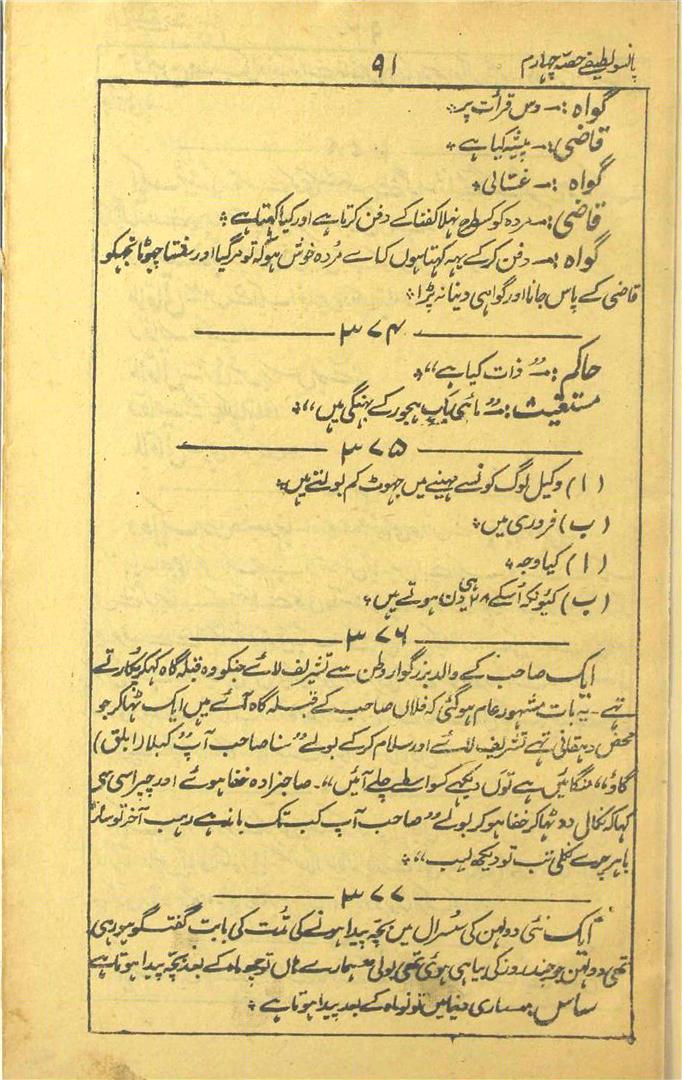 پانسو لطیفے حصہ چہارم
۹۱
گواہ :۔ دس قرأت پر
قاضی :۔ پیشہ کیا ہے
گواہ :۔ غسّالی
قاضی :۔ مردہ کو کسطرح نہلا کفنا کے دفن کرتا ہے اور کیا کہتا ہے
گواہ :۔ دفن کر کے یہہ کہتا ہوں کہ اے مُردہ خوش ہو کہ تو مر گیا اور سفتا چھوٹا تجہکو
قاضی کے پاس جانا اور گواہی دینا نہ پڑا
۳۷۴
حاکم :۔ ”ذات کیا ہے“
مستغیث :۔ ”مائی باپ ہجور کے بہنگی ہیں“
۳۷۵
(ا) وکیل لوگ کونسے مہینے میں جہوٹ کم بولتے ہیں
(ب) فروری میں
(ا) کیا وجہ
(ب) کیونکہ اُسکے ۲۸ ہی دن ہوتے ہیں
۳۷۶
ایک صاحب کے والد بزرگوار وطن سے تشریف لائے جنکو وہ قبلہ گاہ کہکر پکارتے
تہے ۔ یہ بات مشہور عام ہو گئی کہ فلاں صاحب کے قبلہ گاہ آئے ہیں ایک ٹہاکر جو
محض دہقانی تہے تشریف لائے اور سلام کر کے بولے ”سنا صاحب آپ کبلا (ابلق)
گاؤ“ منگائیں ہے توں دیکہے کے واسطے چلے آئیں“۔ صاحبزادہ خفا ہوئے اور چپراسی سے
کہا کہ نکال دو ٹہاکر خفا ہو کر بولے ”صاحب آپ کب تک باندہے رہب آخر تو سانی
باہر چرے نکلی تب تو دیکھ لیب“
۳۷۷
ایک نئی دولہن کی سُسرال میں بچّہ پیدا ہونے کی مُدت کی بابت گفتگو ہو رہی
تھی دولہن جو چند روز کی بیاہی ہوئی تھی بولی ہمارے ہاں تو چھ ماہ کے بعد بچّہ پیدا ہوتا ہے
ساس :۔ ساری دنیا میں تو نو ماہ کے بعد پیدا ہوتا ہے